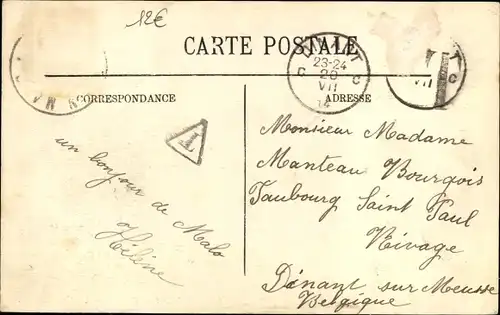 12€
CARTE POSTALE
CORRESPONDANCE
ADRESSE
23-24
20
VII
14
C C
VII
C
T
un bonjour de Malo
Hélène
Monsieur Madame
Manteau Bourgois
Faubourg Saint Paul
Rivage
Dinant sur Meuse
Belgique